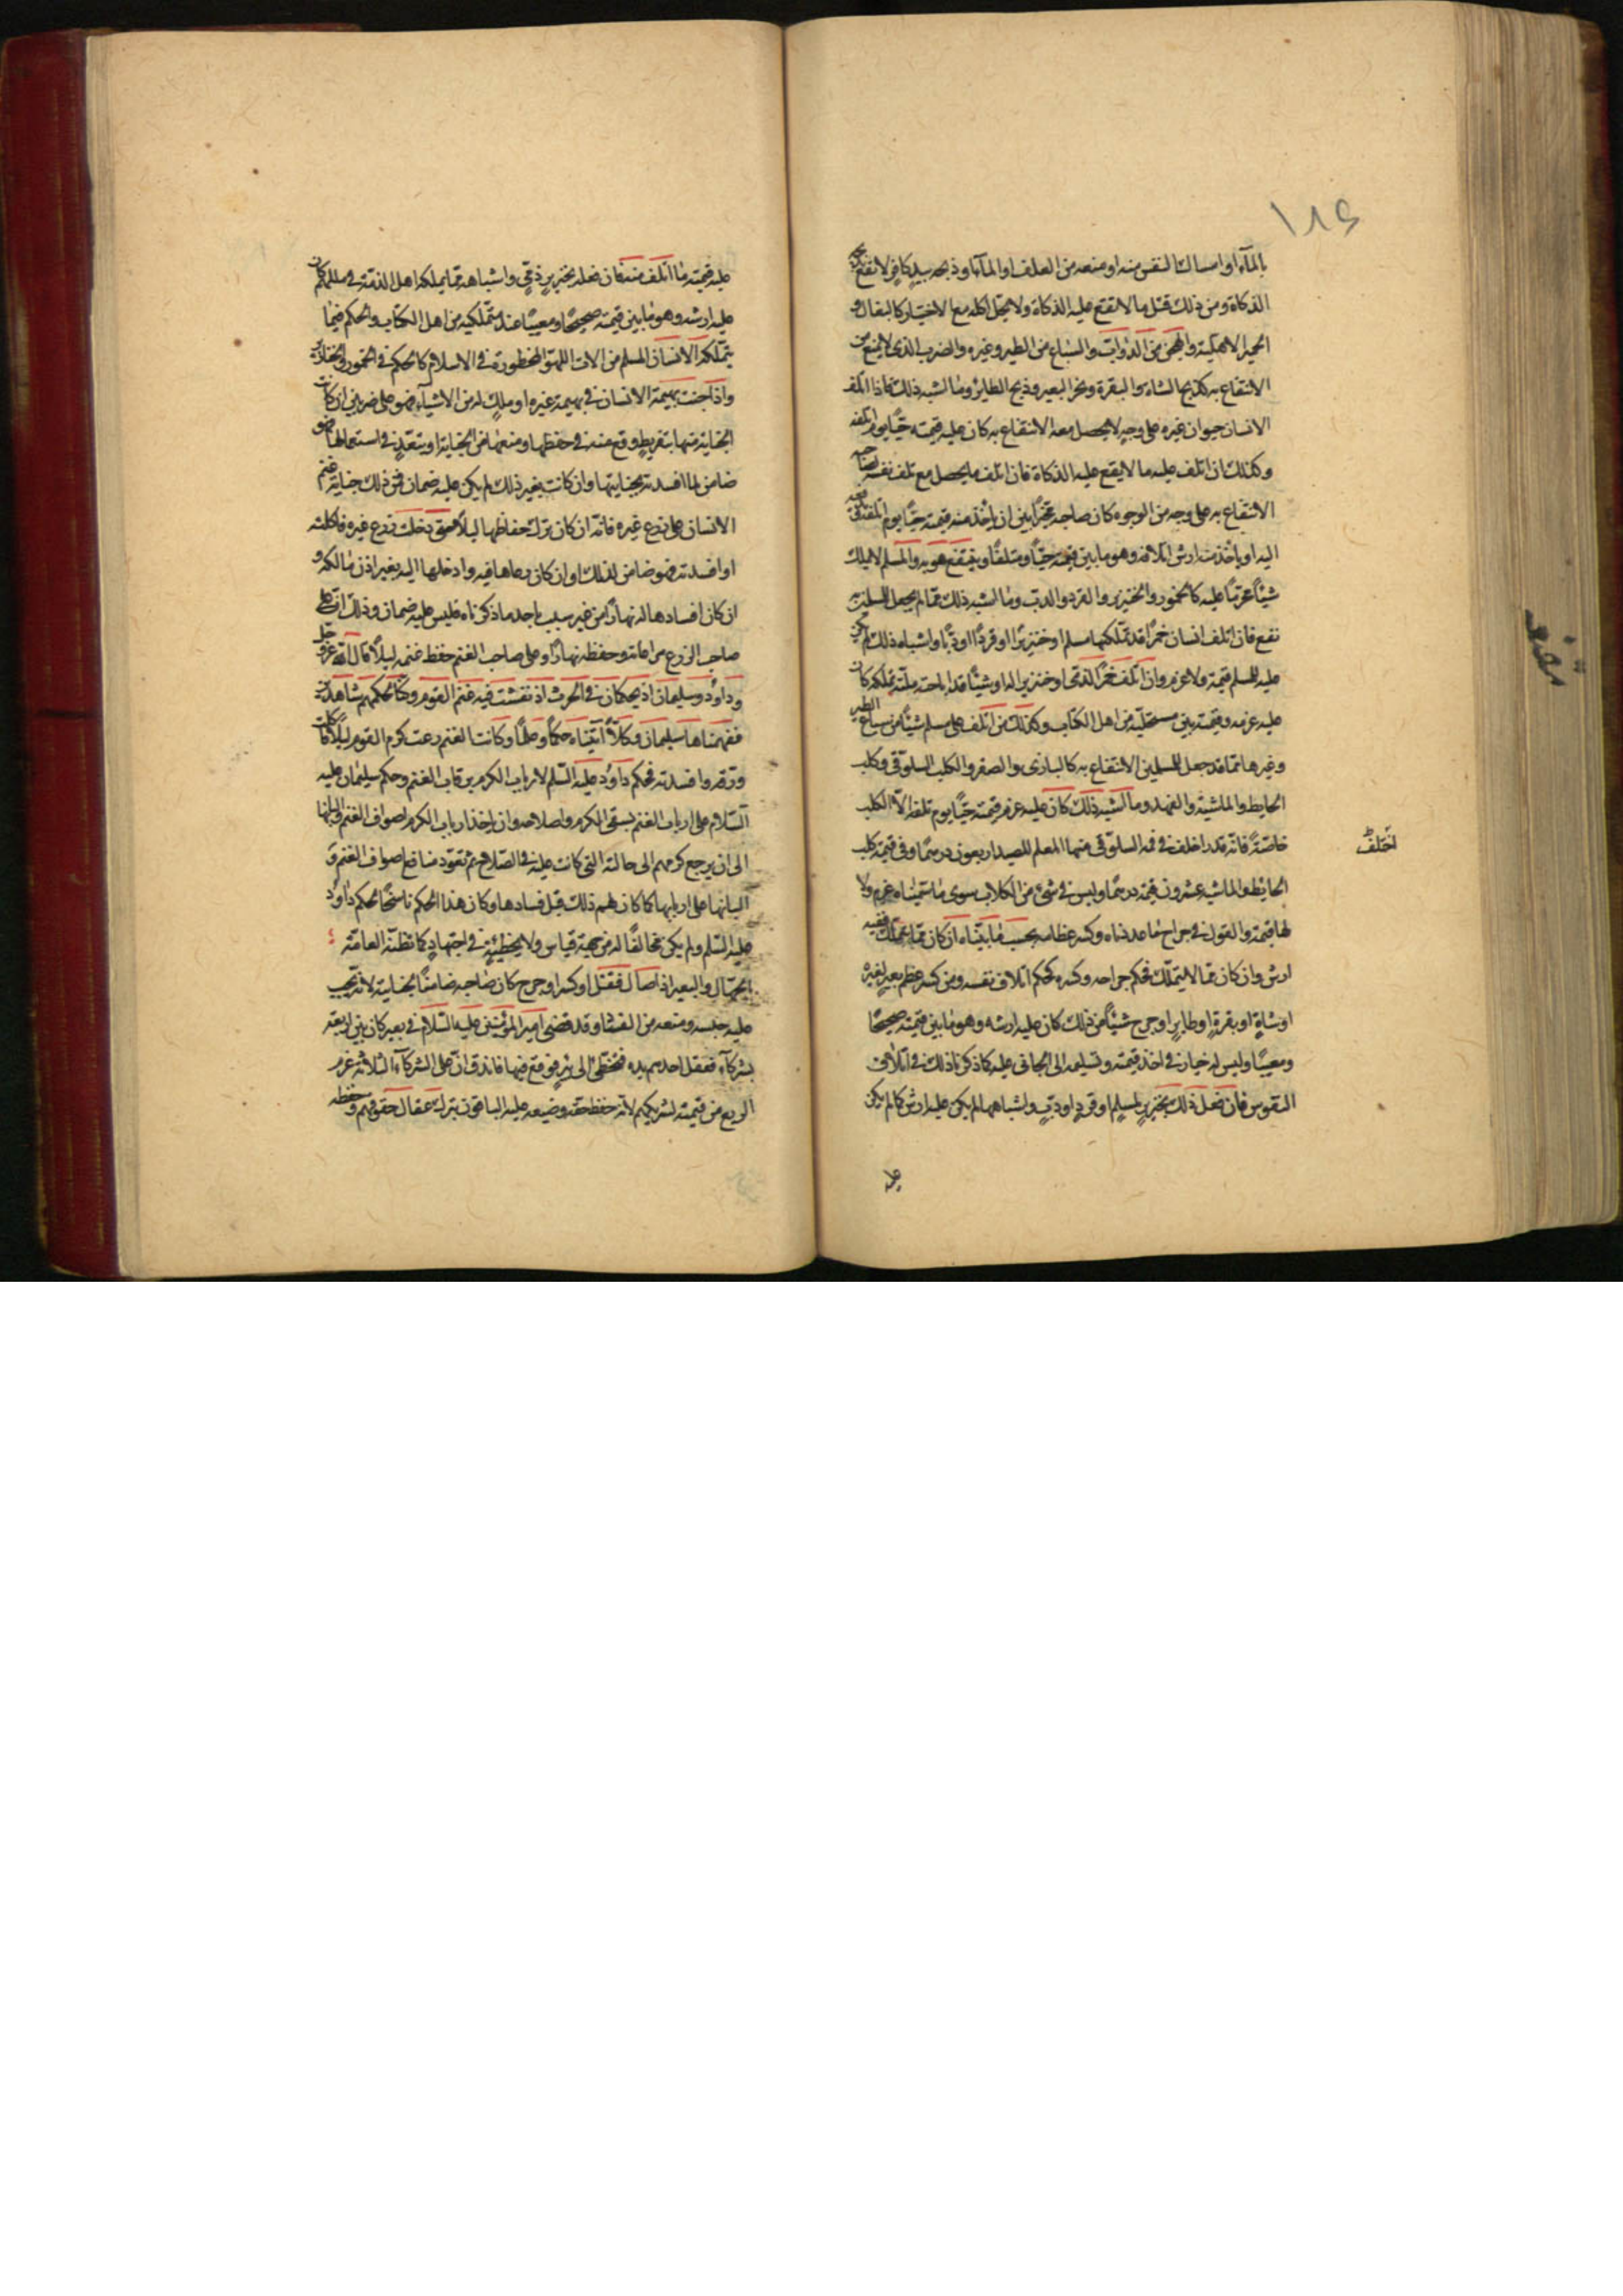 ۱۸۶
بالمآء او امساك النفس منه او منعه من العلف او المآء او ذبحه بيد كافر لا تقع بيده
الذكاة ومن ذلك قتل ما لا تقع عليه الذكاة ولا يحل اكله مع الاختيار كالبغال و
الحمير الاهلية والهجن من الدواب والسباع من الطير وغيره والضرب الذى لا يمنع من
الانتفاع به كذبح الشاة والبقرة ونحر البعير وذبح الطاير وما اشبه ذلك فاذا اتلف
الانسان حيوان غيره على وجه لا يحصل معه الانتفاع به كان عليه قيمته حيًا يوم اتلفه
وكذلك ان اتلف عليه ما لا يقع عليه الذكاة فان اتلف ما يحصل مع تلف نفسه لصاحبه
الانتفاع به على وجه من الوجوه كان صاحبه مخيرًا بين ان ياخذ منه قيمته حيًا يوم اتلفه ويدفعه
اليه او ياخذ منه ارش اتلافه وهو ما بين قيمته حيًا ومتلفًا وينتفع هو به والمسلم لا يملك
شيئًا محرمًا عليه كالخمور والخنزير والقرد والدب وما اشبه ذلك مما لم يجعل للمسلمين به
نفع فان اتلف انسان خمرًا قد تملكها مسلم او خنزيرًا او قردًا او دبًا واشباه ذلك لم يكن
عليه للمسلم قيمة ولا غرم وان اتلف خمرًا لذمى او خنزيرا له او شيئًا قد اباحته ملته تملكه كان
عليه غرمه وقيمته بين مستحليه من اهل الكتاب وكذلك من اتلف على مسلم شيئًا من سباع الطير
وغيرها مما قد جعل للمسلمين الانتفاع به كالبازى والصقر والكلب السلوقى وكلب
الحايط والماشية والفهد وما اشبه ذلك كان عليه غرم قيمته حيًا يوم تلفه الا الكلب
خاصةً فانه قد اخلف فى قيمة السلوقى منها المعلم للصيد اربعون درهمًا وفى قيمة كلب
اختلف
الحايط والماشية عشرون قيمة درهمًا وليس فى شىء من الكلاب سوى ما سميناه غرم ولا
لها قيمة والقول فى جراح ما عددناه وكسر عظامه بحسب ما بيناه ان كان مما يتملك ففيه
ارش وان كان مما لا يتملك فحكم جراحه وكسره كحكم اتلاف نفسه ومن كسر عظم بعير لغيره
او شاةٍ او بقرةٍ او طايرٍ او جرح شيئًا من ذلك كان عليه ارشه وهو ما بين قيمته صحيحًا
ومعيبًا وليس له خيار فى اخذ قيمته وتسليمه الى الجانى عليه كما ذكرناه ذلك فى اتلاف
النفوس فان فعل ذلك بخنزير لمسلم او قرد او دبٍ واشباههما لم يكن عليه ارش كما لم يكن
عليه
عليه قيمته ما اتلف منه فان فعله بخنزير ذمى واشباهه مما يملكه اهل الذمة فى مللهم كان
عليه ارشه وهو ما بين قيمته صحيحًا ومعيبًا عند متملكيه من اهل الكتاب والحكم فيما
يتملكه الانسان المسلم من الات اللهو المحظورة فى الاسلام كالحكم فى الخمور والخنازير
واذا جنت بهيمة الانسان فى بهيمة غيره او ملك له من الاشياء فهو على ضربين ان كانت
الجناية منها بتفريط وقع منه فى حفظها ومنعها من الجناية او بتعدٍ فى استعمالها فهو
ضامن لما افسدته بجنايتها وان كانت بغير ذلك لم يكن عليه ضمان فمن ذلك جناية غنم
الانسان على زرع غيره فانه ان كان ترك حفاظها ليلاً حتى دخلت زرع غيره فاكلته
او افسدته فهو ضامن لذلك او ان كان رعاها فيه وادخلها اليه بغير اذن مالكه و
ان كان افسادها له نهارًا من غير سبب باحد ما ذكرناه فليس عليه ضمان وذلك ان على
صاحب الزرع مراعاته وحفظه نهارًا وعلى صاحب الغنم حفظ غنمه ليلاً قال الله عز وجل
وداوُد وسليمان اذ يحكمان فى الحرث اذ نفشت فيه غنم القوم وكنا لحكمهم شاهدين
ففهمناها سليمان وكلاً اتيناه حكمًا وعلمًا وكانت الغنم رعت كرم القوم ليلاً فاكلت
ورقه وافسدته فحكم داوُد عليه السلم لارباب الكرم برقاب الغنم وحكم سليمان عليه
السلام على ارباب الغنم بسقى الكرم واصلاحه وان ياخذ ارباب الكرم اصواف الغنم والبانها
الى ان يرجع كرمهم الى حالته التى كانت عليه فى الصلاح ثم تعود منافع اصواف الغنم و
البانها على اربابها كما كان لهم ذلك قبل فسادها وكان هذا الحكم ناسخًا لحكم داوُد
عليه السلم ولم يكن مخالفًا له من جهة قياس ولا بخطيئة فى اجتهاد كما تظنه العامة
والبعير اذا صال فقتل او كسر او جرح كان صاحبه ضامنًا لجنايته لانه يجب
عليه حبسه ومنعه من الفساد وقد قضى امير المؤمنين عليه السلام فى بعير كان بين اربعة
شركآء فعقل احدهم يده فتخطى الى بئر فوقع فيها فاندق ان على الشركآء الثلاثة غرم
الربع من قيمته لشريكهم لانه حفظ حقه وضيعه عليه الباقون بترك عقال حقوقهم وحفظه